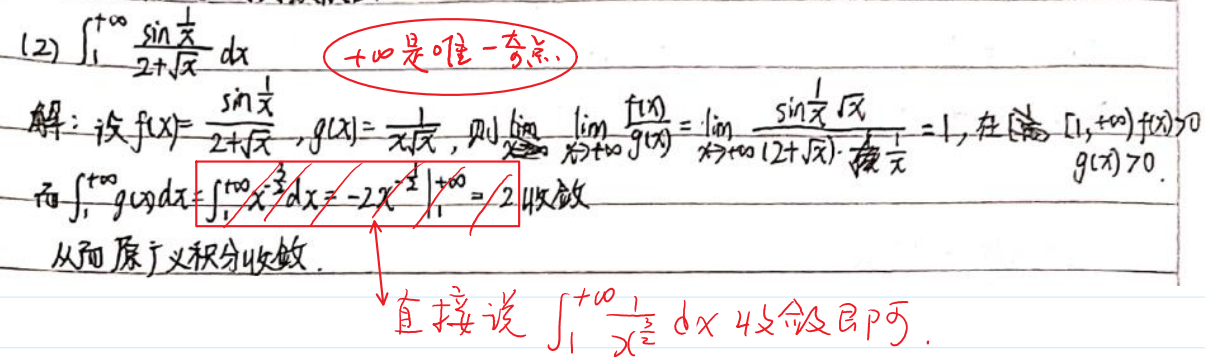 (2) ∫₁^{+∞} \frac{sin\frac{1}{x}}{2+√x} dx
+∞是唯一奇点.
解: 设 f(x)=\frac{sin\frac{1}{x}}{2+√x}, g(x)=\frac{1}{x√x}, 则 \lim_{x→+∞} \frac{f(x)}{g(x)} = \lim_{x→+∞} \frac{sin\frac{1}{x} √x}{(2+√x)·\frac{1}{x}} = 1, 在 [1,+∞) f(x)>0
g(x)>0.
而 ∫₁^{+∞} g(x)dx = ∫₁^{+∞} x^{-\frac{3}{2}} dx = -2x^{-\frac{1}{2}} |₁^{+∞} = 2 收敛
从而原广义积分收敛.
直接说 ∫₁^{+∞} \frac{1}{x^{\frac{3}{2}}} dx 收敛即可.